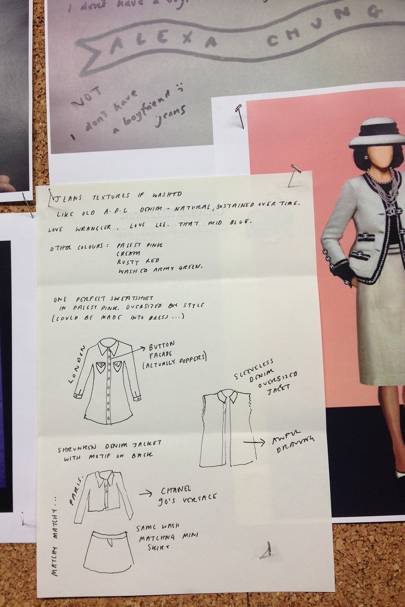 I don't have a boy
ALEXA CHUNG
NOT
I don't have
a boyfriend
jeans
JEANS TEXTURES IF WASHED
LIKE OLD A.P.C DENIM - NATURAL, SUSTAINED OVER TIME.
LOVE WRANGLER. LOVE LEE. THAT MID BLUE.
OTHER COLOURS: PALEST PINK
CREAM
RUSTY RED
WASHED ARMY GREEN.
ONE PERFECT SWEATSHIRT
IN PALEST PINK. OVERSIZED BY STYLE
(COULD BE MADE INTO DRESS...)
LONDON
BUTTON
FACADE
(ACTUALLY POPPERS)
SLEEVELESS
DENIM
OVERSIZED
JACKET
SHRUNKEN DENIM JACKET
WITH MOTIF ON BACK
AWFUL
DRAWING
PARIS.
CHANEL
90'S VERSACE
MATCHY MATCHY...
SAME WASH
MATCHING MINI
SKIRT